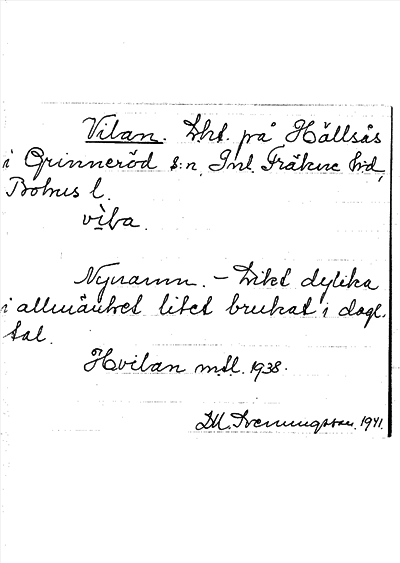 Vilan. Lht. på Hällsås
i Grinneröd s:n, Inl. Fräkne hd,
Bohus l.
vìla.
Nynamn. – Likt dylika
i allmänhet litet brukat i dagl.
tal.
Hvilan mtl. 1938.
D.M. Svenningsson. 1941.